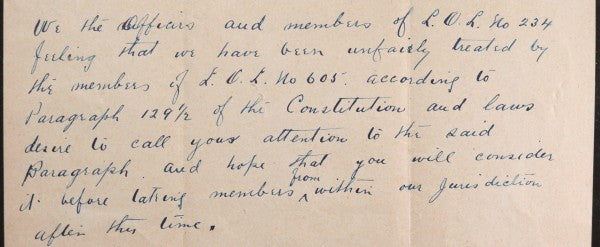 We the Officirs and members of L.O.L. No 234
feeling that we have been unfairly treated by
the members of L.O.L. No 605. according to
Paragraph 129½ of the Constitution and laws
desire to call your attention to the said
Paragraph. and hope that you will consider
it before taking members from within our Jurisdiction
after this time.